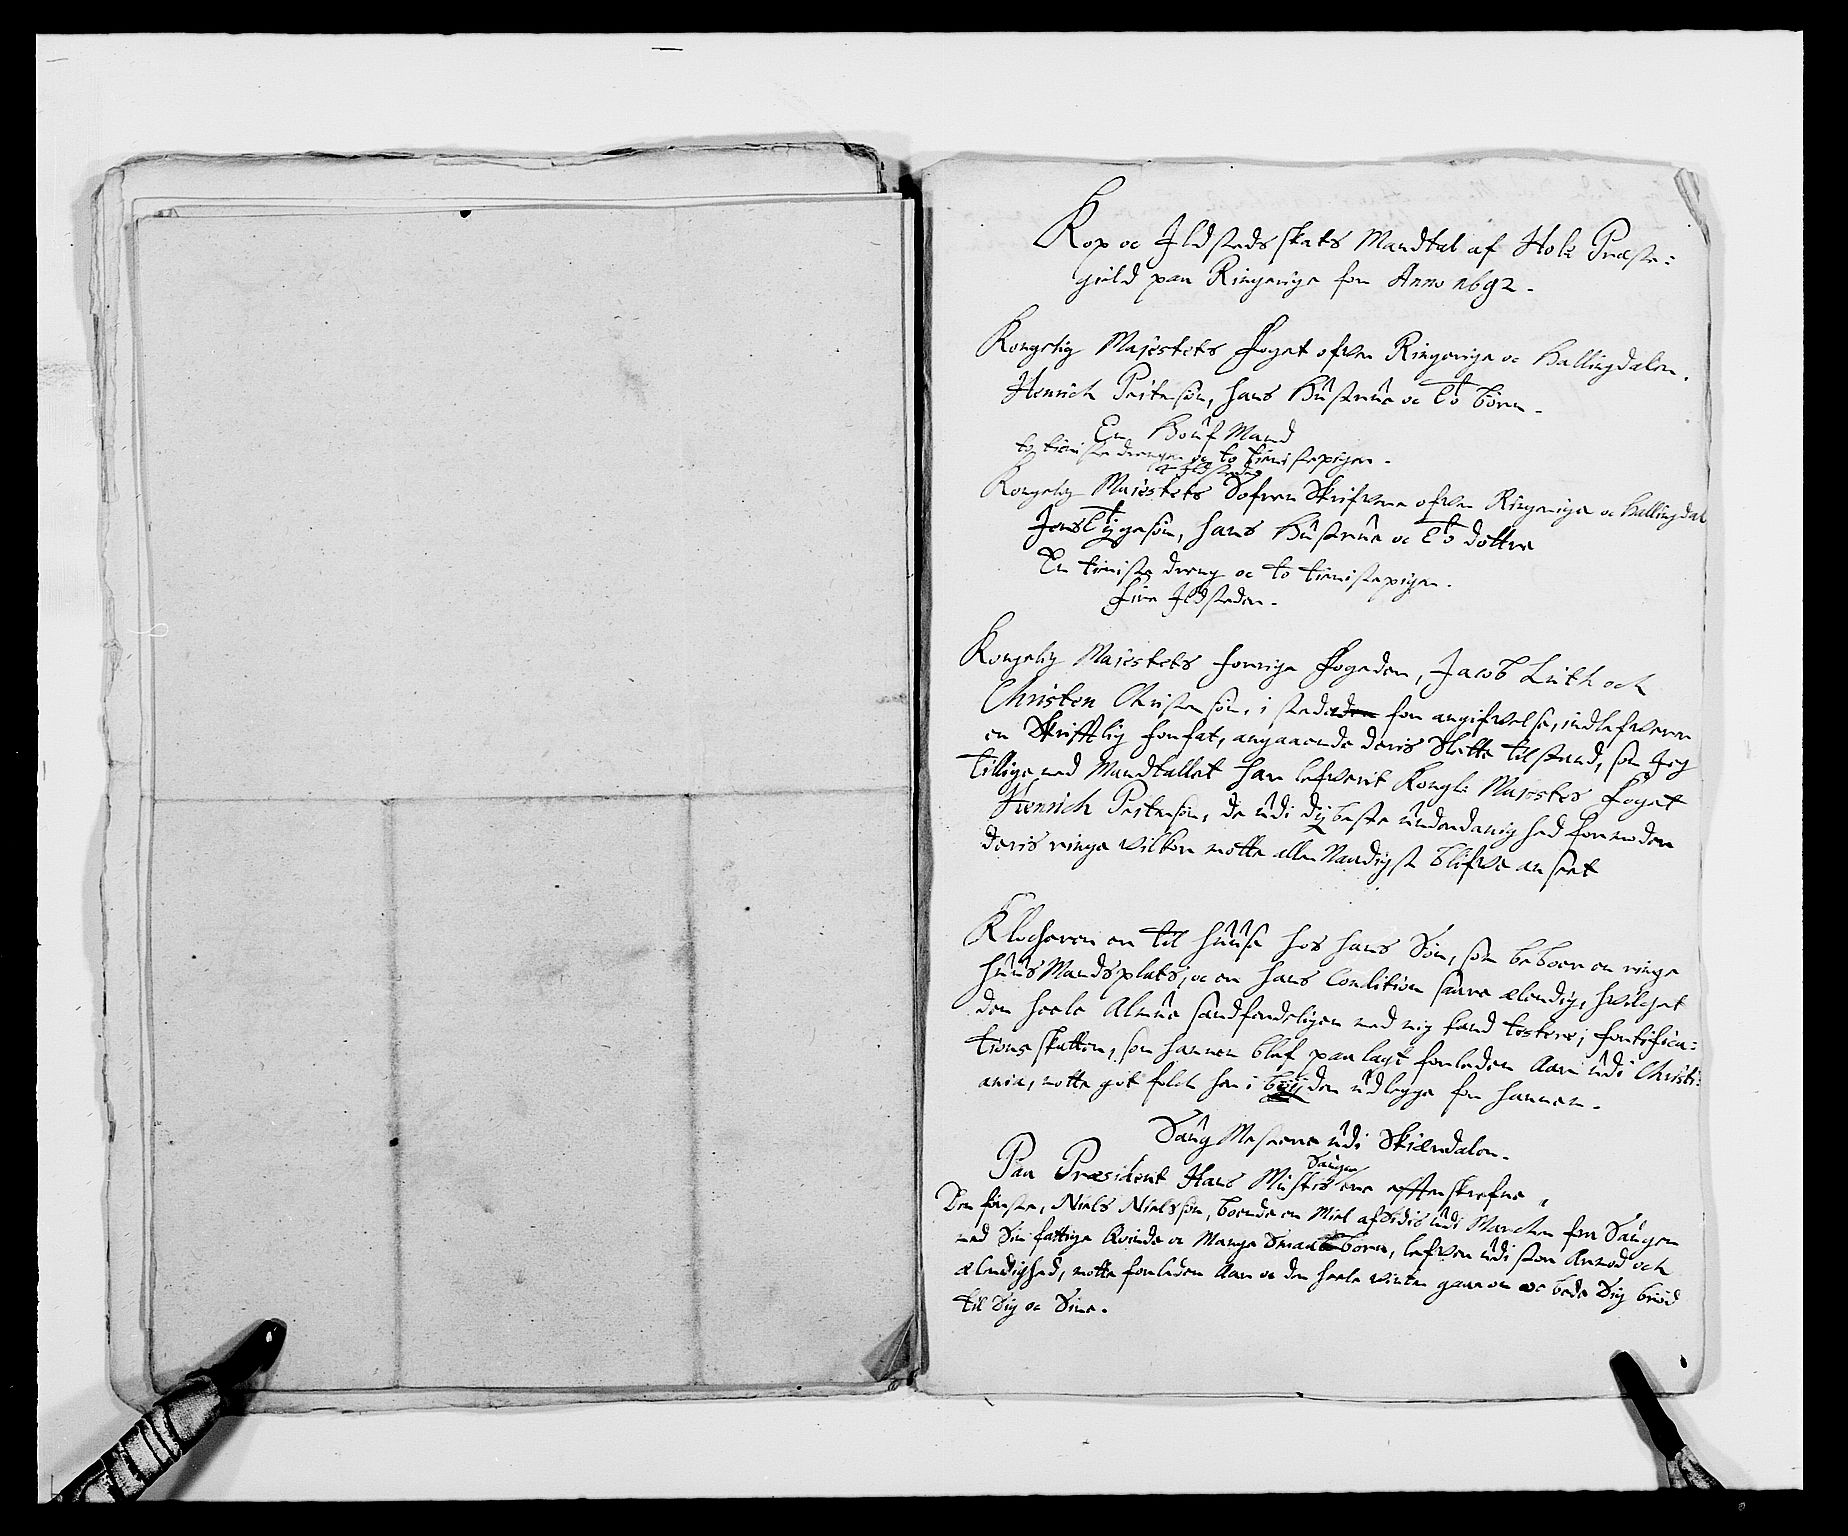 Kop oc Ildstedsskats Mandtal af Hole Præste-
gield paa Ringerige for Anno 1692.
Kongelig Majestets Foget ofver Ringerige oc Hallingdalen.
Henrich Pettersøn, hans Hustrue oc To børn.
En Houf Mand
to tieniste drenger oc to tienistepiger.
Ildsteder
Kongelig Majestets Sofren Skrifvere ofver Ringerige oc Hallingdal
Jens Tygesøn, hans Hustrue oc To døttre
En tieniste dreng oc to tienistepiger.
fire Ildsteder.
Kongelig Majestets forrige Fogeder, Jacob Luth och
Christen Christensøn, i steden for angifvelse, indlefverer
en Skrifftlig forfat, angaaende deris Slette tilstand, som Jeg
tillige med Mandtallet har lefverit Kongl: Majestets Foget
Henrich Pettersøn, de udi dybeste underdanighed formoder
deris ringe vilkor motte aller Naadigst blifve anseet
Klocheren er til huuse hos hans Søn, som beboer en ringe
huusMandsplats, oc er hans Condition saare elendig, hvilchet
den heele Almue sandferdeligen med mig kand testere; fortifica-
tions skatten, som hannem blef paa lagt forleden Aar udi Christi-
ania, motte got folch her i bøyden udlegge for hannem.
Saug Mestere udi Skiærdalen.
Paa Præsident Hans Mustis Sauger ere effterskrefne,
Den første, Niels Nielssøn, boende en Miel afsidis udi Marchen fra Saugen
med Sin fattige Qvinde oc Mange Smaa børn, lefver udi stor Armod och
elendighed, motte forleden Aar oc den heele vinter gaae om oc bede Sig brød
til Sig oc Sine.